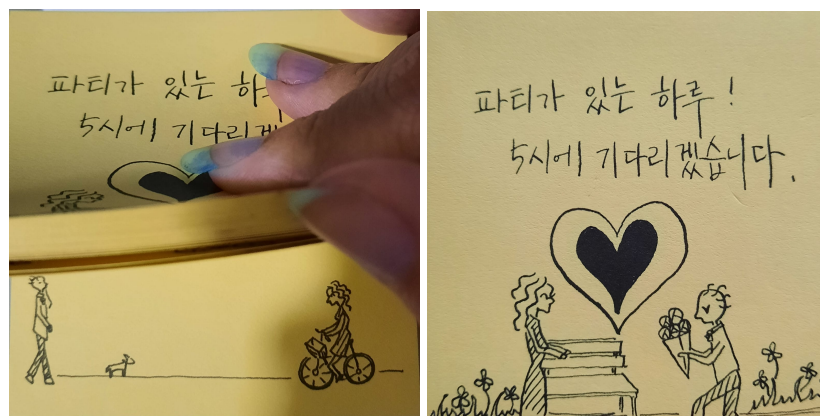 파티가 있는 하
5시에 기다리겠
파티가 있는 하루!
5시에 기다리겠습니다.